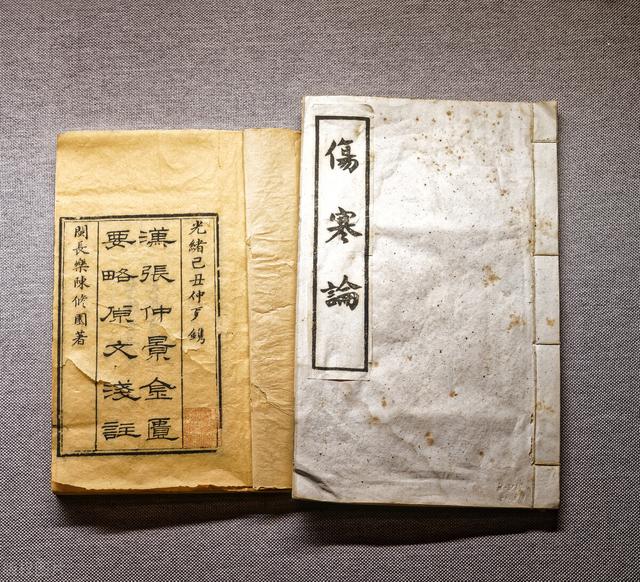 光緒己丑仲鐫
漢張仲景金匱
要略原文淺註
閩長樂陳修園著
傷寒論